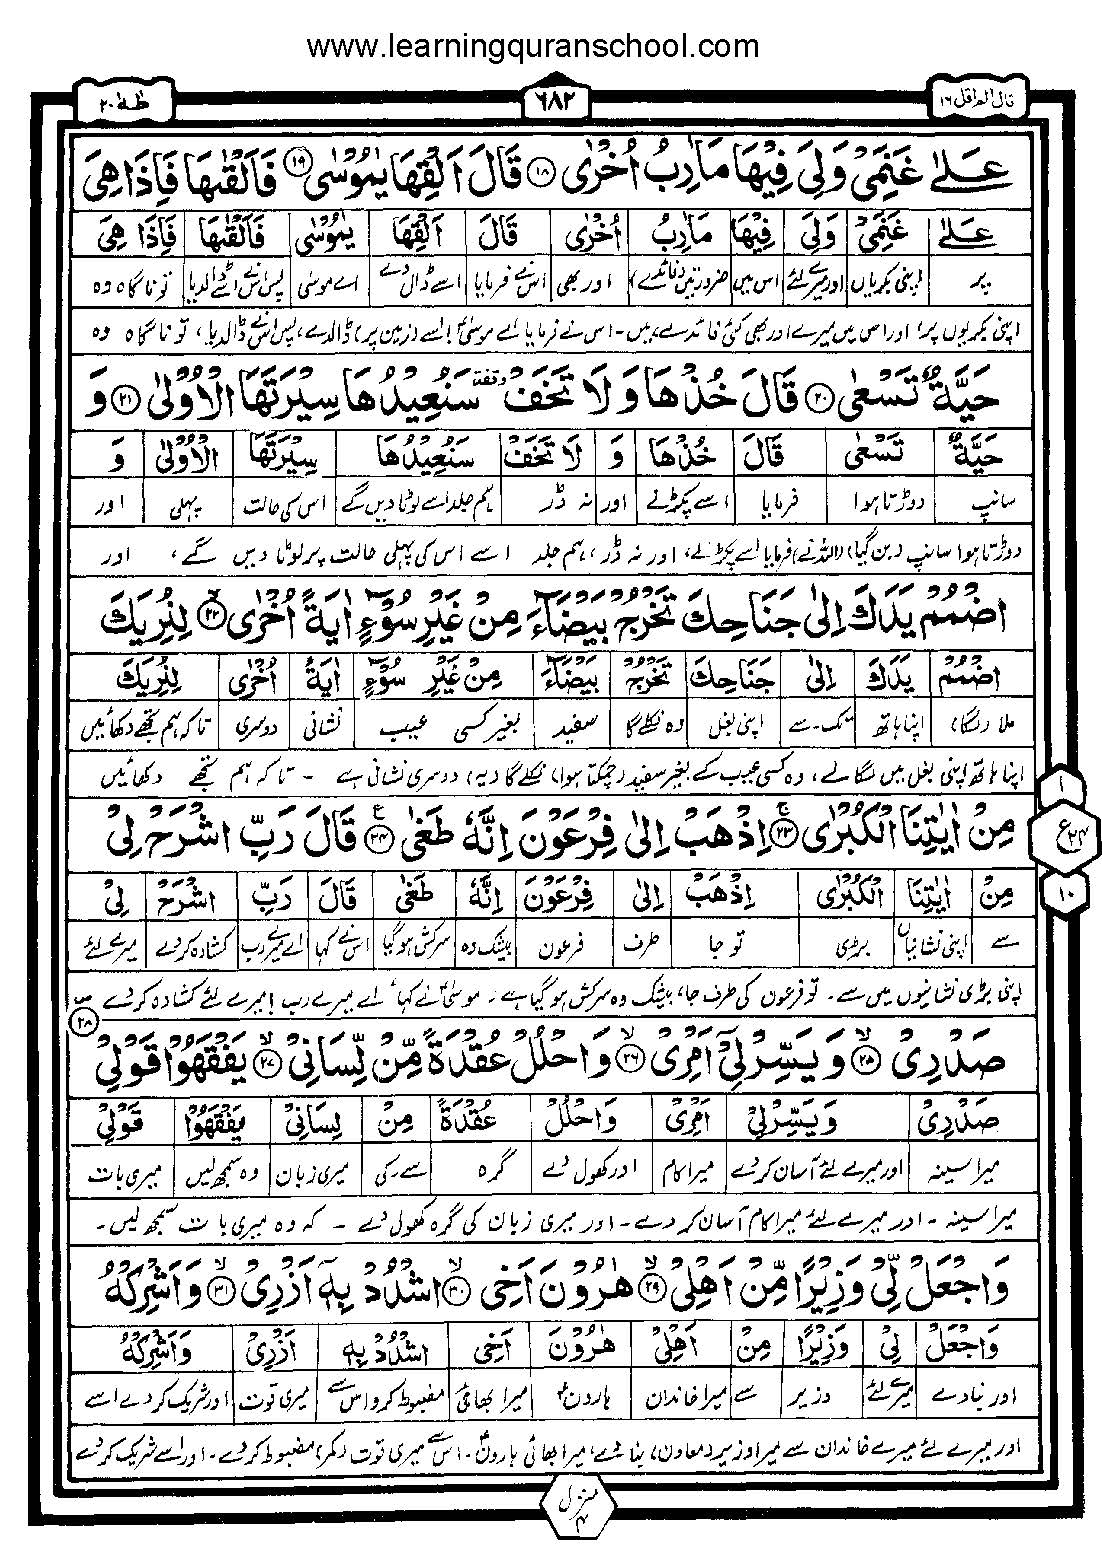 www.learningquranschool.com
قال الم اقل ١٦
٦٨٢
طٰهٰ ٢٠
عَلٰى غَنَمِىْ وَلِىَ فِيْهَا مَاٰرِبُ اُخْرٰى ١٨ قَالَ اَلْقِهَا يٰمُوْسٰى ١٩ فَاَلْقٰىهَا فَاِذَا هِىَ
عَلٰى غَنَمِىْ وَلِىَ فِيْهَا مَاٰرِبُ اُخْرٰى قَالَ اَلْقِهَا يٰمُوْسٰى فَاَلْقٰىهَا فَاِذَا هِىَ
پر اپنی بکریاں اور میرے لئے اس میں ضرورتیں (فائدے) اور بھی اس نے فرمایا اسے ڈال دے اے موسیٰ پس اس نے اسے ڈالدیا تو ناگاہ وہ
اپنی بکریوں پر، اور اس میں میرے اور بھی کئی فائدے ہیں۔ اس نے فرمایا اے موسیٰ! اسے (زمین پر) ڈالدے، پس اس نے ڈالدیا، تو ناگاہ وہ
حَيَّةٌ تَسْعٰى ٢٠ قَالَ خُذْهَا وَلَا تَخَفْ وقفة سَنُعِيْدُهَا سِيْرَتَهَا الْاُوْلٰى ٢١ وَ
حَيَّةٌ تَسْعٰى قَالَ خُذْهَا وَ لَا تَخَفْ سَنُعِيْدُهَا سِيْرَتَهَا الْاُوْلٰى وَ
سانپ دوڑتا ہوا فرمایا اسے پکڑلے اور نہ ڈر ہم جلد اسے لوٹا دیں گے اس کی حالت پہلی اور
دوڑتا ہوا سانپ (بن گیا) (اللہ نے) فرمایا اسے پکڑلے، اور نہ ڈر، ہم جلد اسے اس کی پہلی حالت پر لوٹا دیں گے، اور
اضْمُمْ يَدَكَ اِلٰى جَنَاحِكَ تَخْرُجْ بَيْضَآءَ مِنْ غَيْرِ سُوْٓءٍ اٰيَةً اُخْرٰى ٢٢ لِنُرِيَكَ
اضْمُمْ يَدَكَ اِلٰى جَنَاحِكَ تَخْرُجْ بَيْضَآءَ مِنْ غَيْرِ سُوْٓءٍ اٰيَةً اُخْرٰى لِنُرِيَكَ
ملا (لگا) اپنا ہاتھ تک۔سے اپنی بغل وہ نکلے گا سفید بغیر کسی عیب نشانی دوسری تاکہ ہم تجھے دکھائیں
اپنا ہاتھ اپنی بغل میں لگا لے، وہ کسی عیب کے بغیر سفید (چمکتا ہوا) نکلے گا (یہ) دوسری نشانی ہے ۔ تاکہ ہم تجھے دکھائیں
مِنْ اٰيٰتِنَا الْكُبْرٰى ٢٣ اِذْهَبْ اِلٰى فِرْعَوْنَ اِنَّهٗ طَغٰى ٢٤ قَالَ رَبِّ اشْرَحْ لِىْ
مِنْ اٰيٰتِنَا الْكُبْرٰى اِذْهَبْ اِلٰى فِرْعَوْنَ اِنَّهٗ طَغٰى قَالَ رَبِّ اشْرَحْ لِىْ
سے اپنی نشانیاں بڑی تو جا طرف فرعون بیشک وہ سرکش ہوگیا اس نے کہا اے میرے رب کشادہ کردے میرے لئے
اپنی بڑی نشانیوں میں سے۔ تو فرعون کی طرف جا، بیشک وہ سرکش ہوگیا ہے۔ موسیٰ نے کہا، اے میرے رب! میرے لئے کشادہ کردے
١
ع ٢٤
١٠
صَدْرِىْ ٢٥ وَيَسِّرْ لِىْٓ اَمْرِىْ ٢٦ وَاحْلُلْ عُقْدَةً مِّنْ لِّسَانِىْ ٢٧ يَفْقَهُوْا قَوْلِىْ ٢٨
صَدْرِىْ وَيَسِّرْلِىْ اَمْرِىْ وَاحْلُلْ عُقْدَةً مِنْ لِسَانِىْ يَفْقَهُوْا قَوْلِىْ
میرا سینہ اور میرے لئے آسان کردے میرا کام اور کھول دے گرہ سے۔کی میری زبان وہ سمجھ لیں میری بات
میرا سینہ ۔ اور میرے لئے میرا کام آسان کردے۔ اور میری زبان کی گرہ کھول دے ۔ کہ وہ میری بات سمجھ لیں۔
وَاجْعَلْ لِّىْ وَزِيْرًا مِّنْ اَهْلِىْ ٢٩ هٰرُوْنَ اَخِى ٣٠ اشْدُدْ بِهٖٓ اَزْرِىْ ٣١ وَاَشْرِكْهُ
وَاجْعَلْ لِىْ وَزِيْرًا مِنْ اَهْلِىْ هٰرُوْنَ اَخِى اشْدُدْ بِهٖ اَزْرِىْ وَاَشْرِكْهُ
اور بنادے میرے لئے وزیر سے میرا خاندان ہارون میرا بھائی مضبوط کر اس سے میری قوت اور شریک کردے اسے
اور میرے لئے میرے خاندان سے میرا وزیر (معاون) بنا دے، میرا بھائی ہارون۔ اس سے میری قوت (کمر) مضبوط کردے۔ اور اسے شریک کردے
منزل ۴